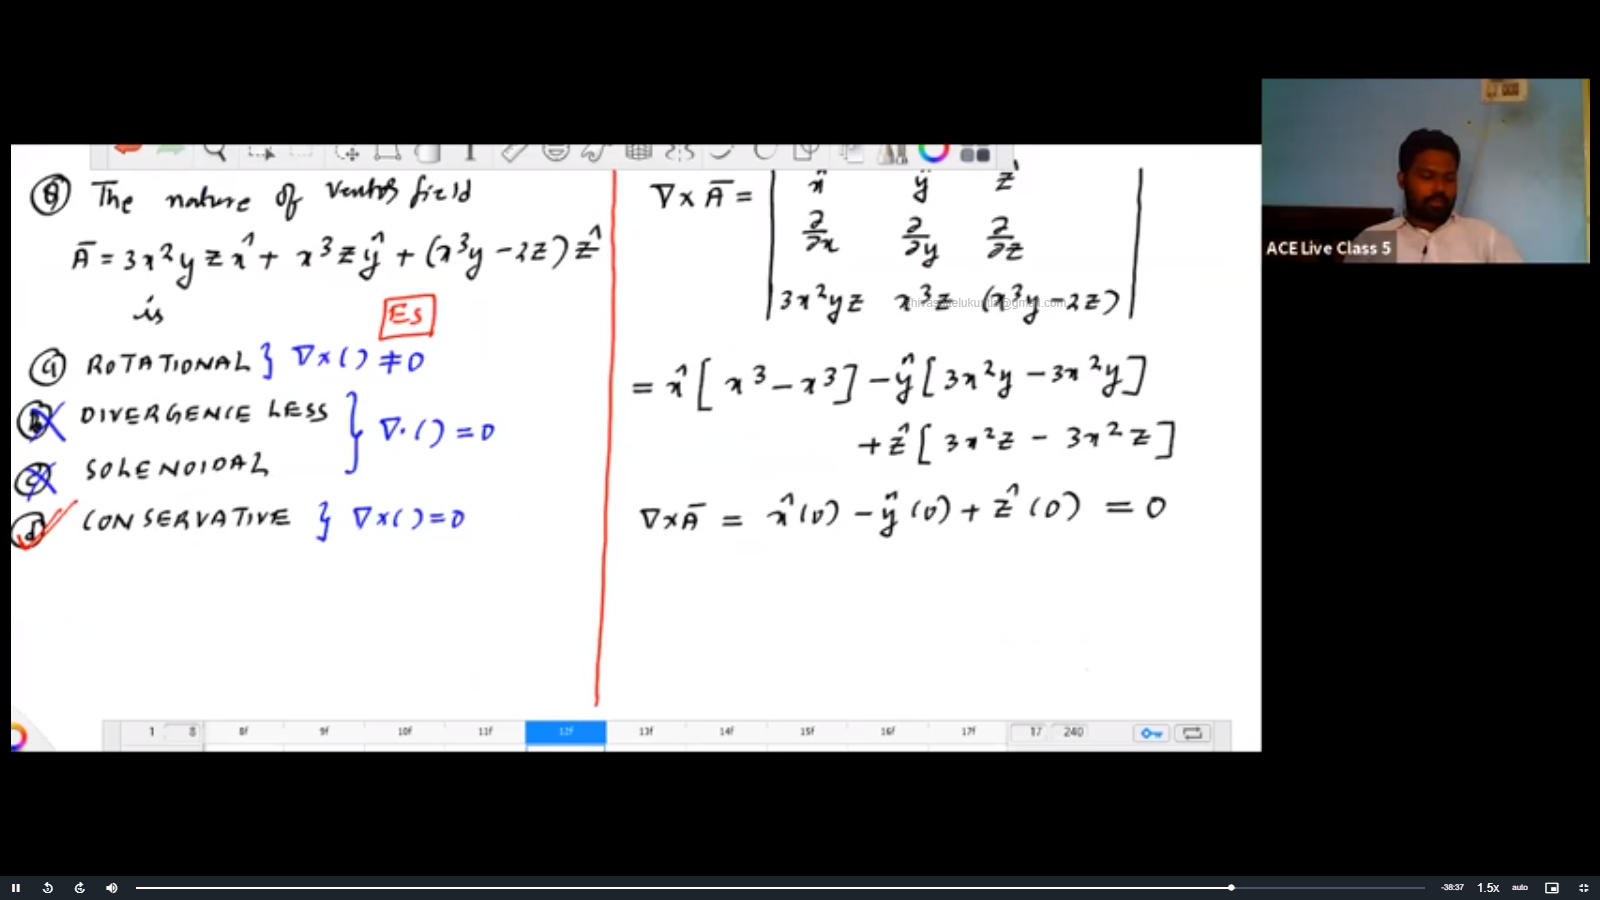 Q The nature of Vector field
Ā = 3x²yz x̂ + x³z ŷ + (x³y - 2z) ẑ
is
Es
a ROTATIONAL } ∇×() ≠ 0
b DIVERGENCE LESS
} ∇·() = 0
c SOLENOIDAL
d CONSERVATIVE } ∇×() = 0
∇×Ā = | x̂ ŷ ẑ
∂/∂x ∂/∂y ∂/∂z
3x²yz x³z (x³y - 2z) |
= x̂[x³ - x³] - ŷ[3x²y - 3x²y]
+ ẑ[3x²z - 3x²z]
∇×Ā = x̂(0) - ŷ(0) + ẑ(0) = 0
ACE Live Class 5
1 8 8f 9f 10f 11f 12f 13f 14f 15f 16f 17f 17 240
-38:37 1.5x auto